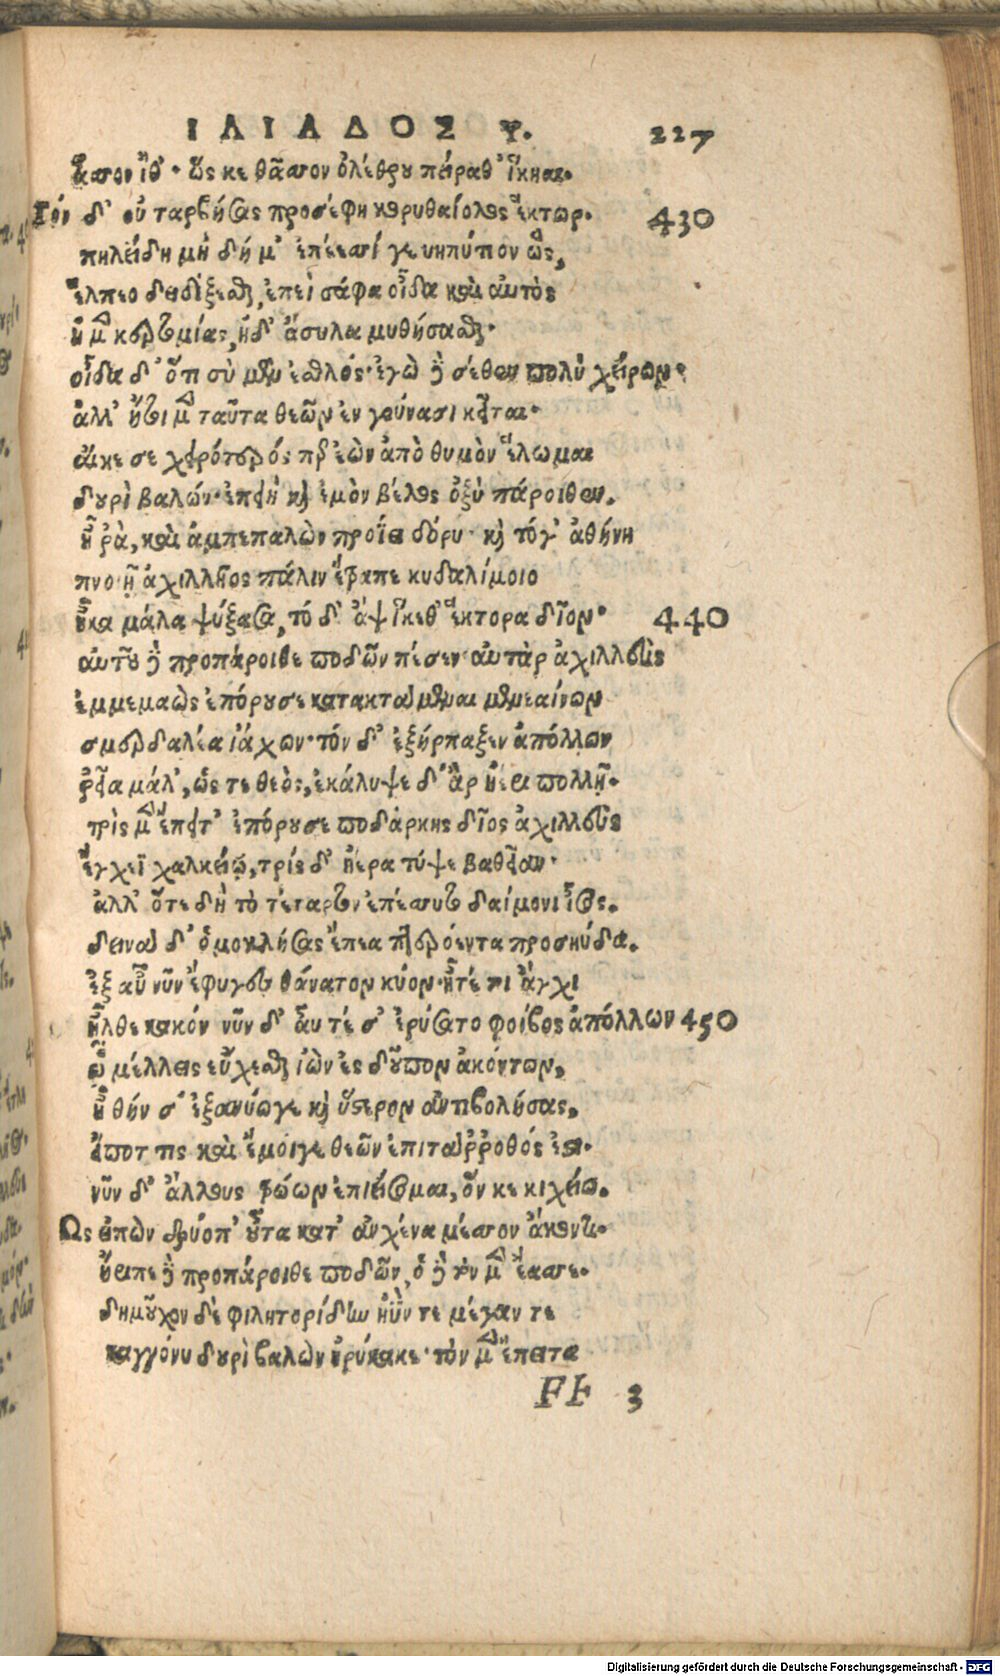 ΙΛΙΑΔΟΣ Υ. 227
ἆσσον ἴθ'· ὥς κε θᾶσσον ὀλέθρου πείραθ' ἵκηαι.
Τὸν δ' οὐ ταρβήσας προσέφη κορυθαίολος ἕκτωρ. 430
πηλείδη μὴ δή μ' ἐπέεσσί γε νηπύτιον ὣς,
ἔλπεο δειδίξεσθαι, ἐπεὶ σάφα οἶδα καὶ αὐτὸς
ἠ μὲν κερτομίας, ἠδ' ἄσυλα μυθήσασθαι·
οἶδα δ' ὅτι σὺ μὲν ἐσθλός· ἐγὼ δὲ σέθεν πολὺ χείρων·
ἀλλ' ἤτοι μὲν ταῦτα θεῶν ἐν γούνασι κεῖται·
αἴκε σε χειρότερός περ ἐὼν ἀπὸ θυμὸν ἕλωμαι
δουρὶ βαλών· ἐπειὴ καὶ ἐμὸν βέλος ὀξὺ πάροιθεν.
ἦ ῥὰ, καὶ ἀμπεπαλὼν προΐει δόρυ· καὶ τόγ' ἀθήνη
πνοιῇ ἀχιλλῆος πάλιν ἔτραπε κυδαλίμοιο
ἦκα μάλα ψύξασα, τὸ δ' ἂψ ἵκεθ' ἕκτορα δῖον· 440
αὐτοῦ δὲ προπάροιθε ποδῶν πέσεν· αὐτὰρ ἀχιλλεὺς
ἐμμεμαὼς ἐπόρουσε κατακτάμεναι μενεαίνων
σμερδαλέα ἰάχων· τὸν δ' ἐξήρπαξεν ἀπόλλων
ῥεῖα μάλ', ὥς τε θεὸς, ἐκάλυψε δ' ἂρ ἠέρι πολλῇ.
τρὶς μὲν ἔπειτ' ἐπόρουσε ποδάρκης δῖος ἀχιλλεὺς
ἔγχεϊ χαλκείῳ, τρὶς δ' ἠέρα τύψε βαθεῖαν·
ἀλλ' ὅτε δὴ τὸ τέταρτον ἐπέσσυτο δαίμονι ἶσος.
δεινὰ δ' ὁμοκλήσας ἔπεα πτερόεντα προσηύδα.
ἐξ αὖ νῦν ἔφυγες θάνατον κύον· ἦτέ τοι ἄγχι
ἦλθε κακόν νῦν δ' αὖτέ σ' ἐρύσατο φοῖβος ἀπόλλων 450
ᾧ μέλλεις εὔχεσθαι ἰὼν ἐς δοῦπον ἀκόντων,
ἦ θήν σ' ἐξανύω γε καὶ ὕστερον ἀντιβολήσας,
εἴπου τις καὶ ἔμοιγε θεῶν ἐπιτάρροθός ἐστι.
νῦν δ' ἄλλους τρώων ἐπιείσομαι, ὅν κε κιχείω.
Ὣς εἰπὼν δρύοπ' οὖτα κατ' αὐχένα μέσσον ἄκοντι.
ἤριπε δὲ προπάροιθε ποδῶν, ὁ δὲ τὸν μὲν ἔασσε.
δημοῦχον δὲ φιλητορίδην ἠΰν τε μέγαν τε
καγγόνυ δουρὶ βαλὼν ἠρύκακε· τὸν μὲν ἔπειτα
FF 3
Digitalisierung gefördert durch die Deutsche Forschungsgemeinschaft - DFG